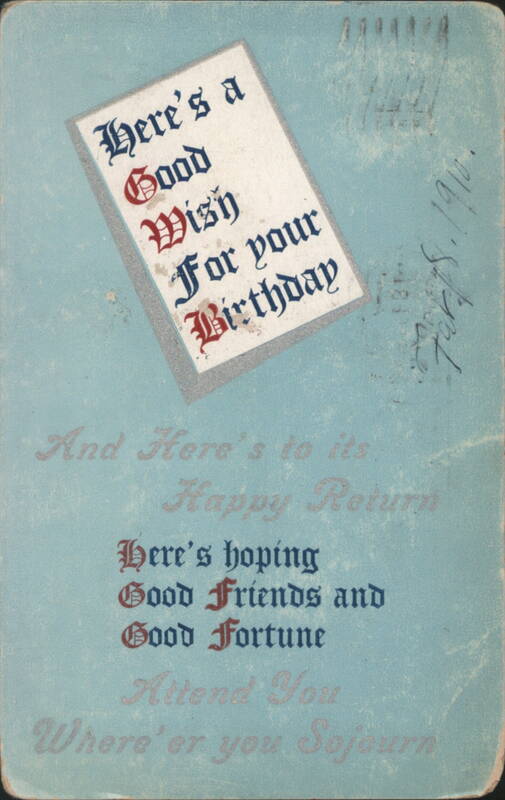 Here's a
Good
Wish
For your
Birthday
1910.
And Here's to its
Happy Return
Here's hoping
Good Friends and
Good Fortune
Attend You
Where'er you Sojourn